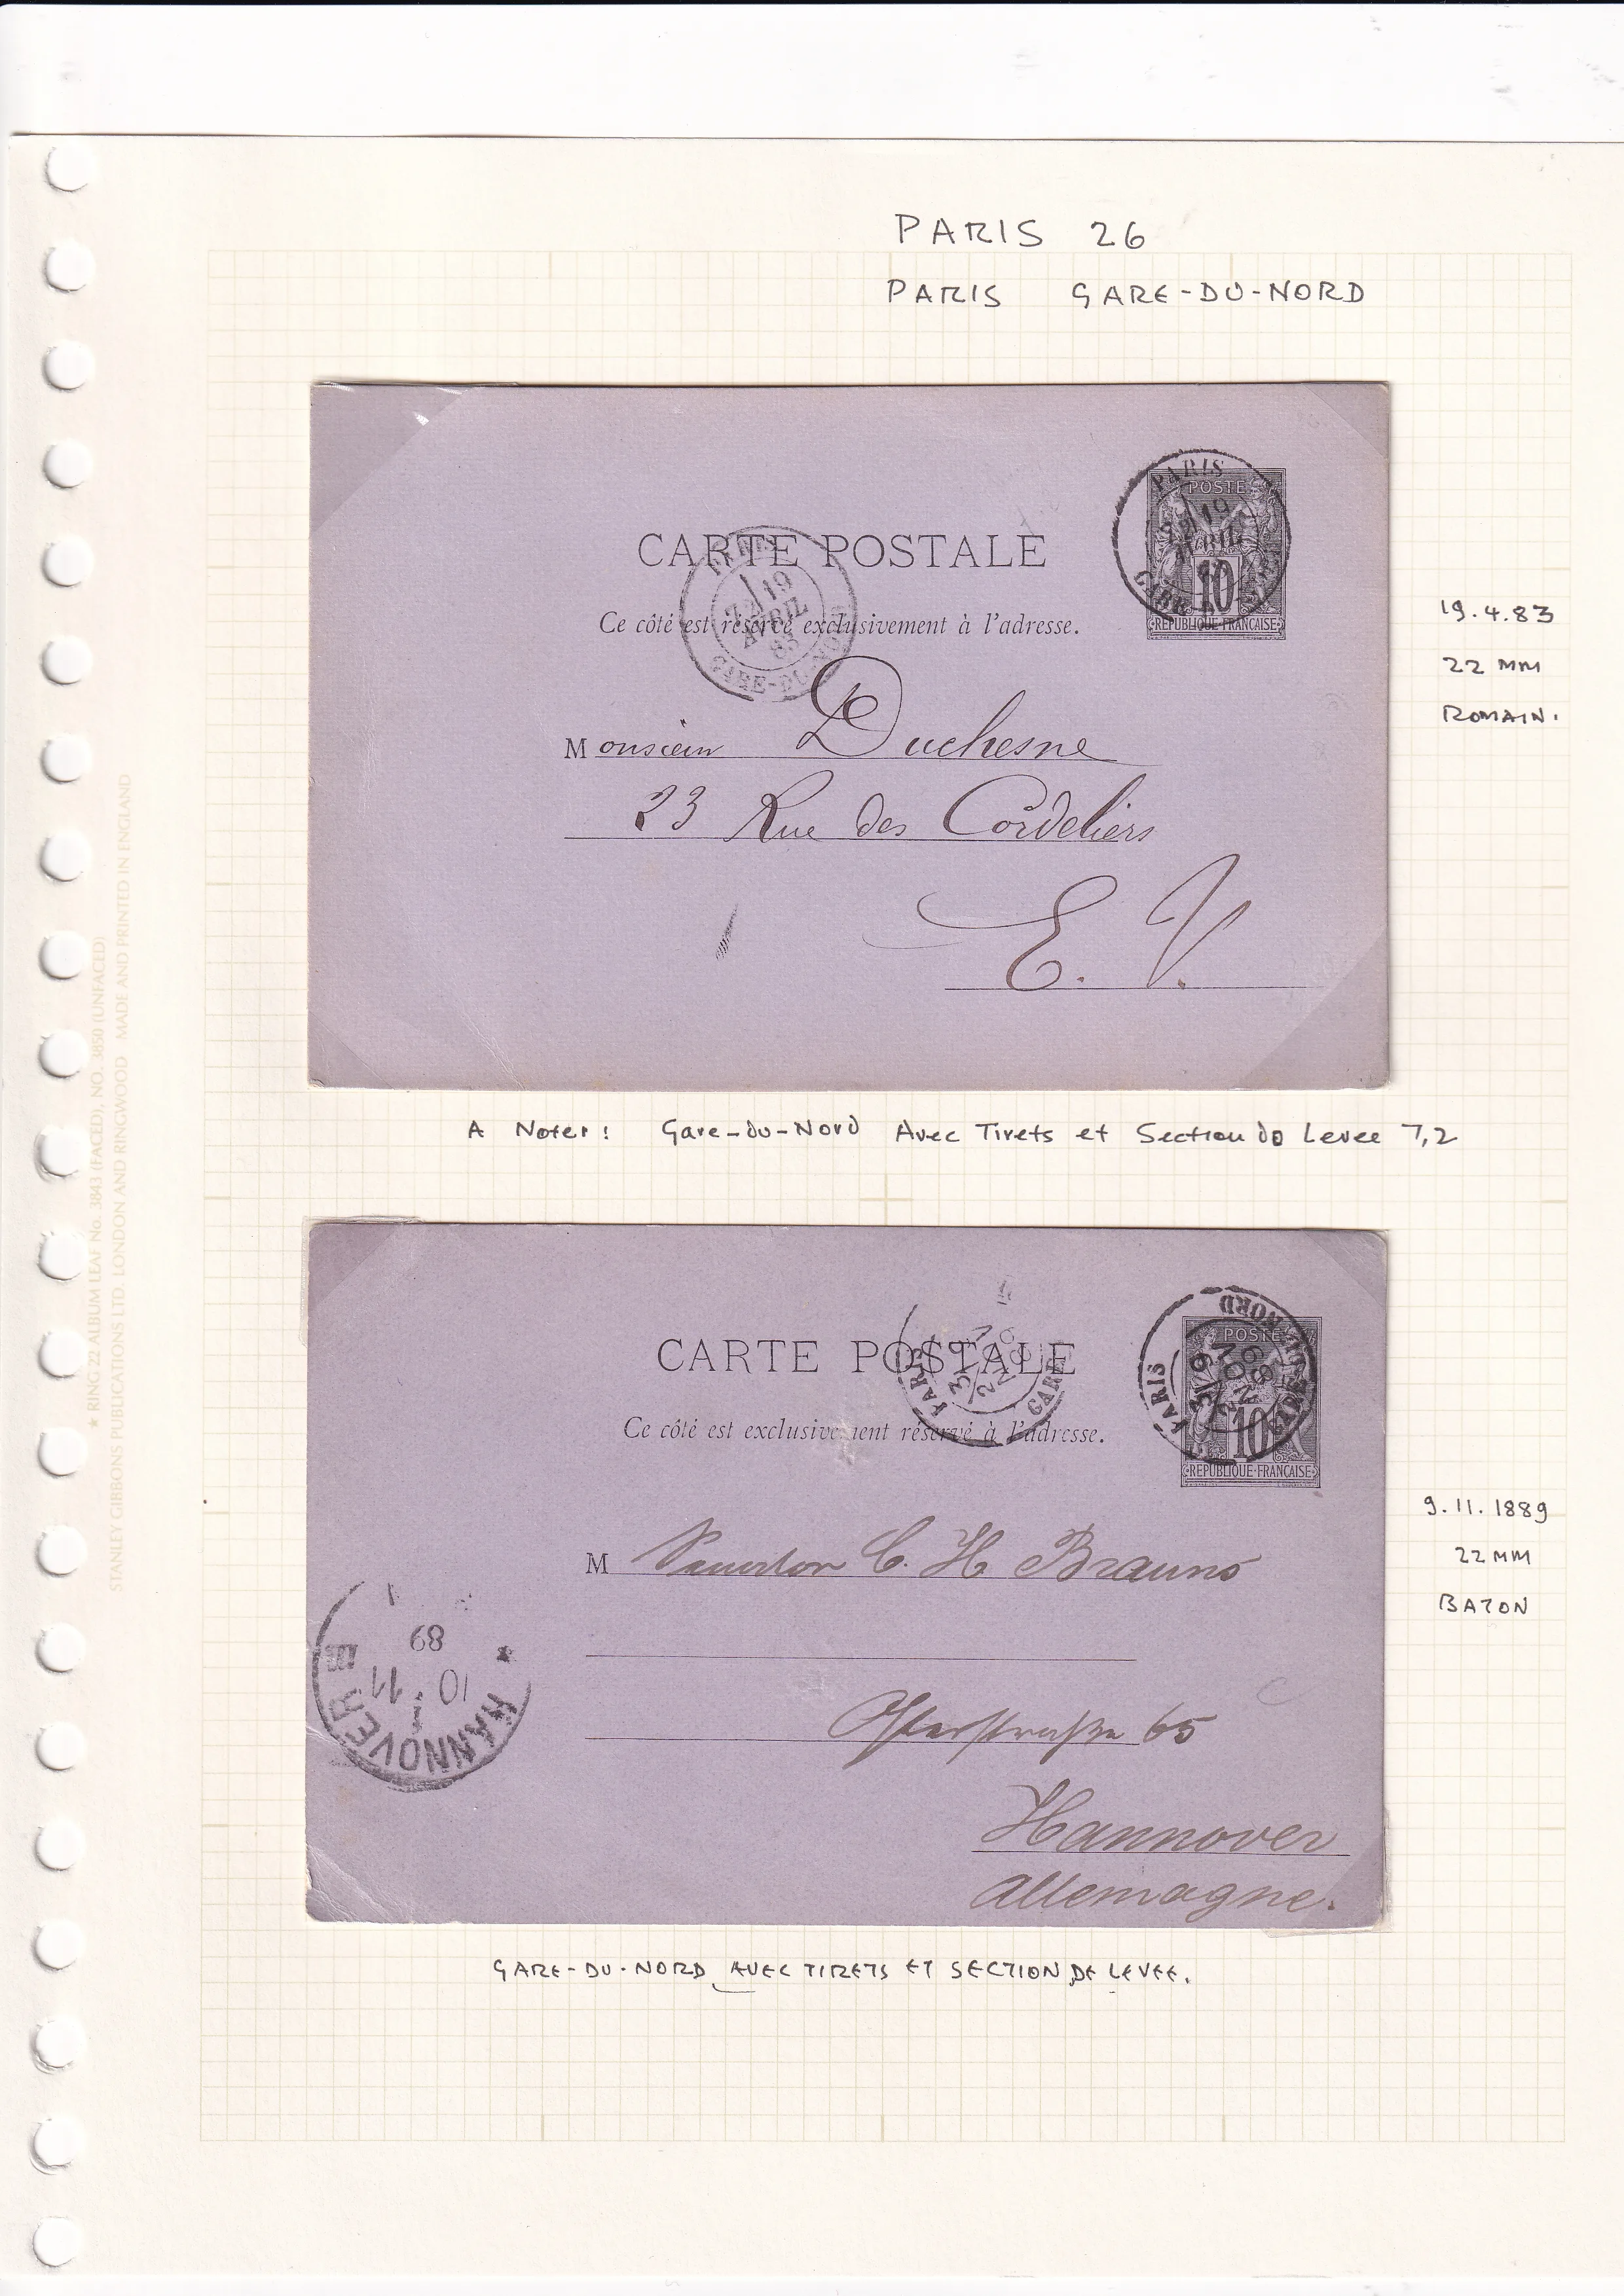 PARIS 26
PARIS GARE-DU-NORD
CARTE POSTALE
Ce côté est réservé exclusivement à l'adresse.
PARIS
19
AVRIL
83
GARE-DU-NORD
PARIS
POSTE
19
AVRIL
10
REPUBLIQUE FRANÇAISE
Monsieur Duchesne
23 Rue des Cordeliers
E. V.
19.4.83
22 MM
ROMAIN.
A Noter: Gare-du-Nord Avec Tirets et Section de Levee 7,2
CARTE POSTALE
Ce côté est exclusivement réservé à l'adresse.
PARIS
GARE
PARIS
NORD
9
NOV
89
POSTE
10
REPUBLIQUE FRANÇAISE
M C. H Brauns
Osterstraße 65
Hannover
Allemagne.
HANNOVER
10 11
89
9.11.1889
22 MM
BATON
GARE-DU-NORD AVEC TIRETS ET SECTION DE LEVEE.
★ RING 22 ALBUM LEAF No. 3843 (FACED), NO. 3850 (UNFACED)
STANLEY GIBBONS PUBLICATIONS LTD. LONDON AND RINGWOOD MADE AND PRINTED IN ENGLAND